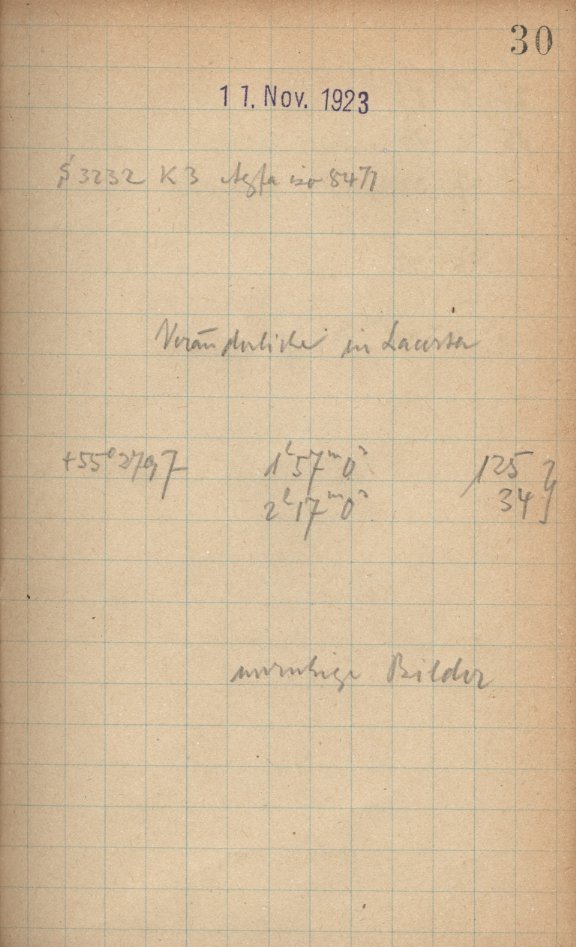 30
11. Nov. 1923
S 3232 K 3 Agfa iso 8471
Veränderliche in Lacerta
+55° 2797 1ʰ57ᵐ0ˢ 125
2ʰ17ᵐ0ˢ 34
unruhige Bilder